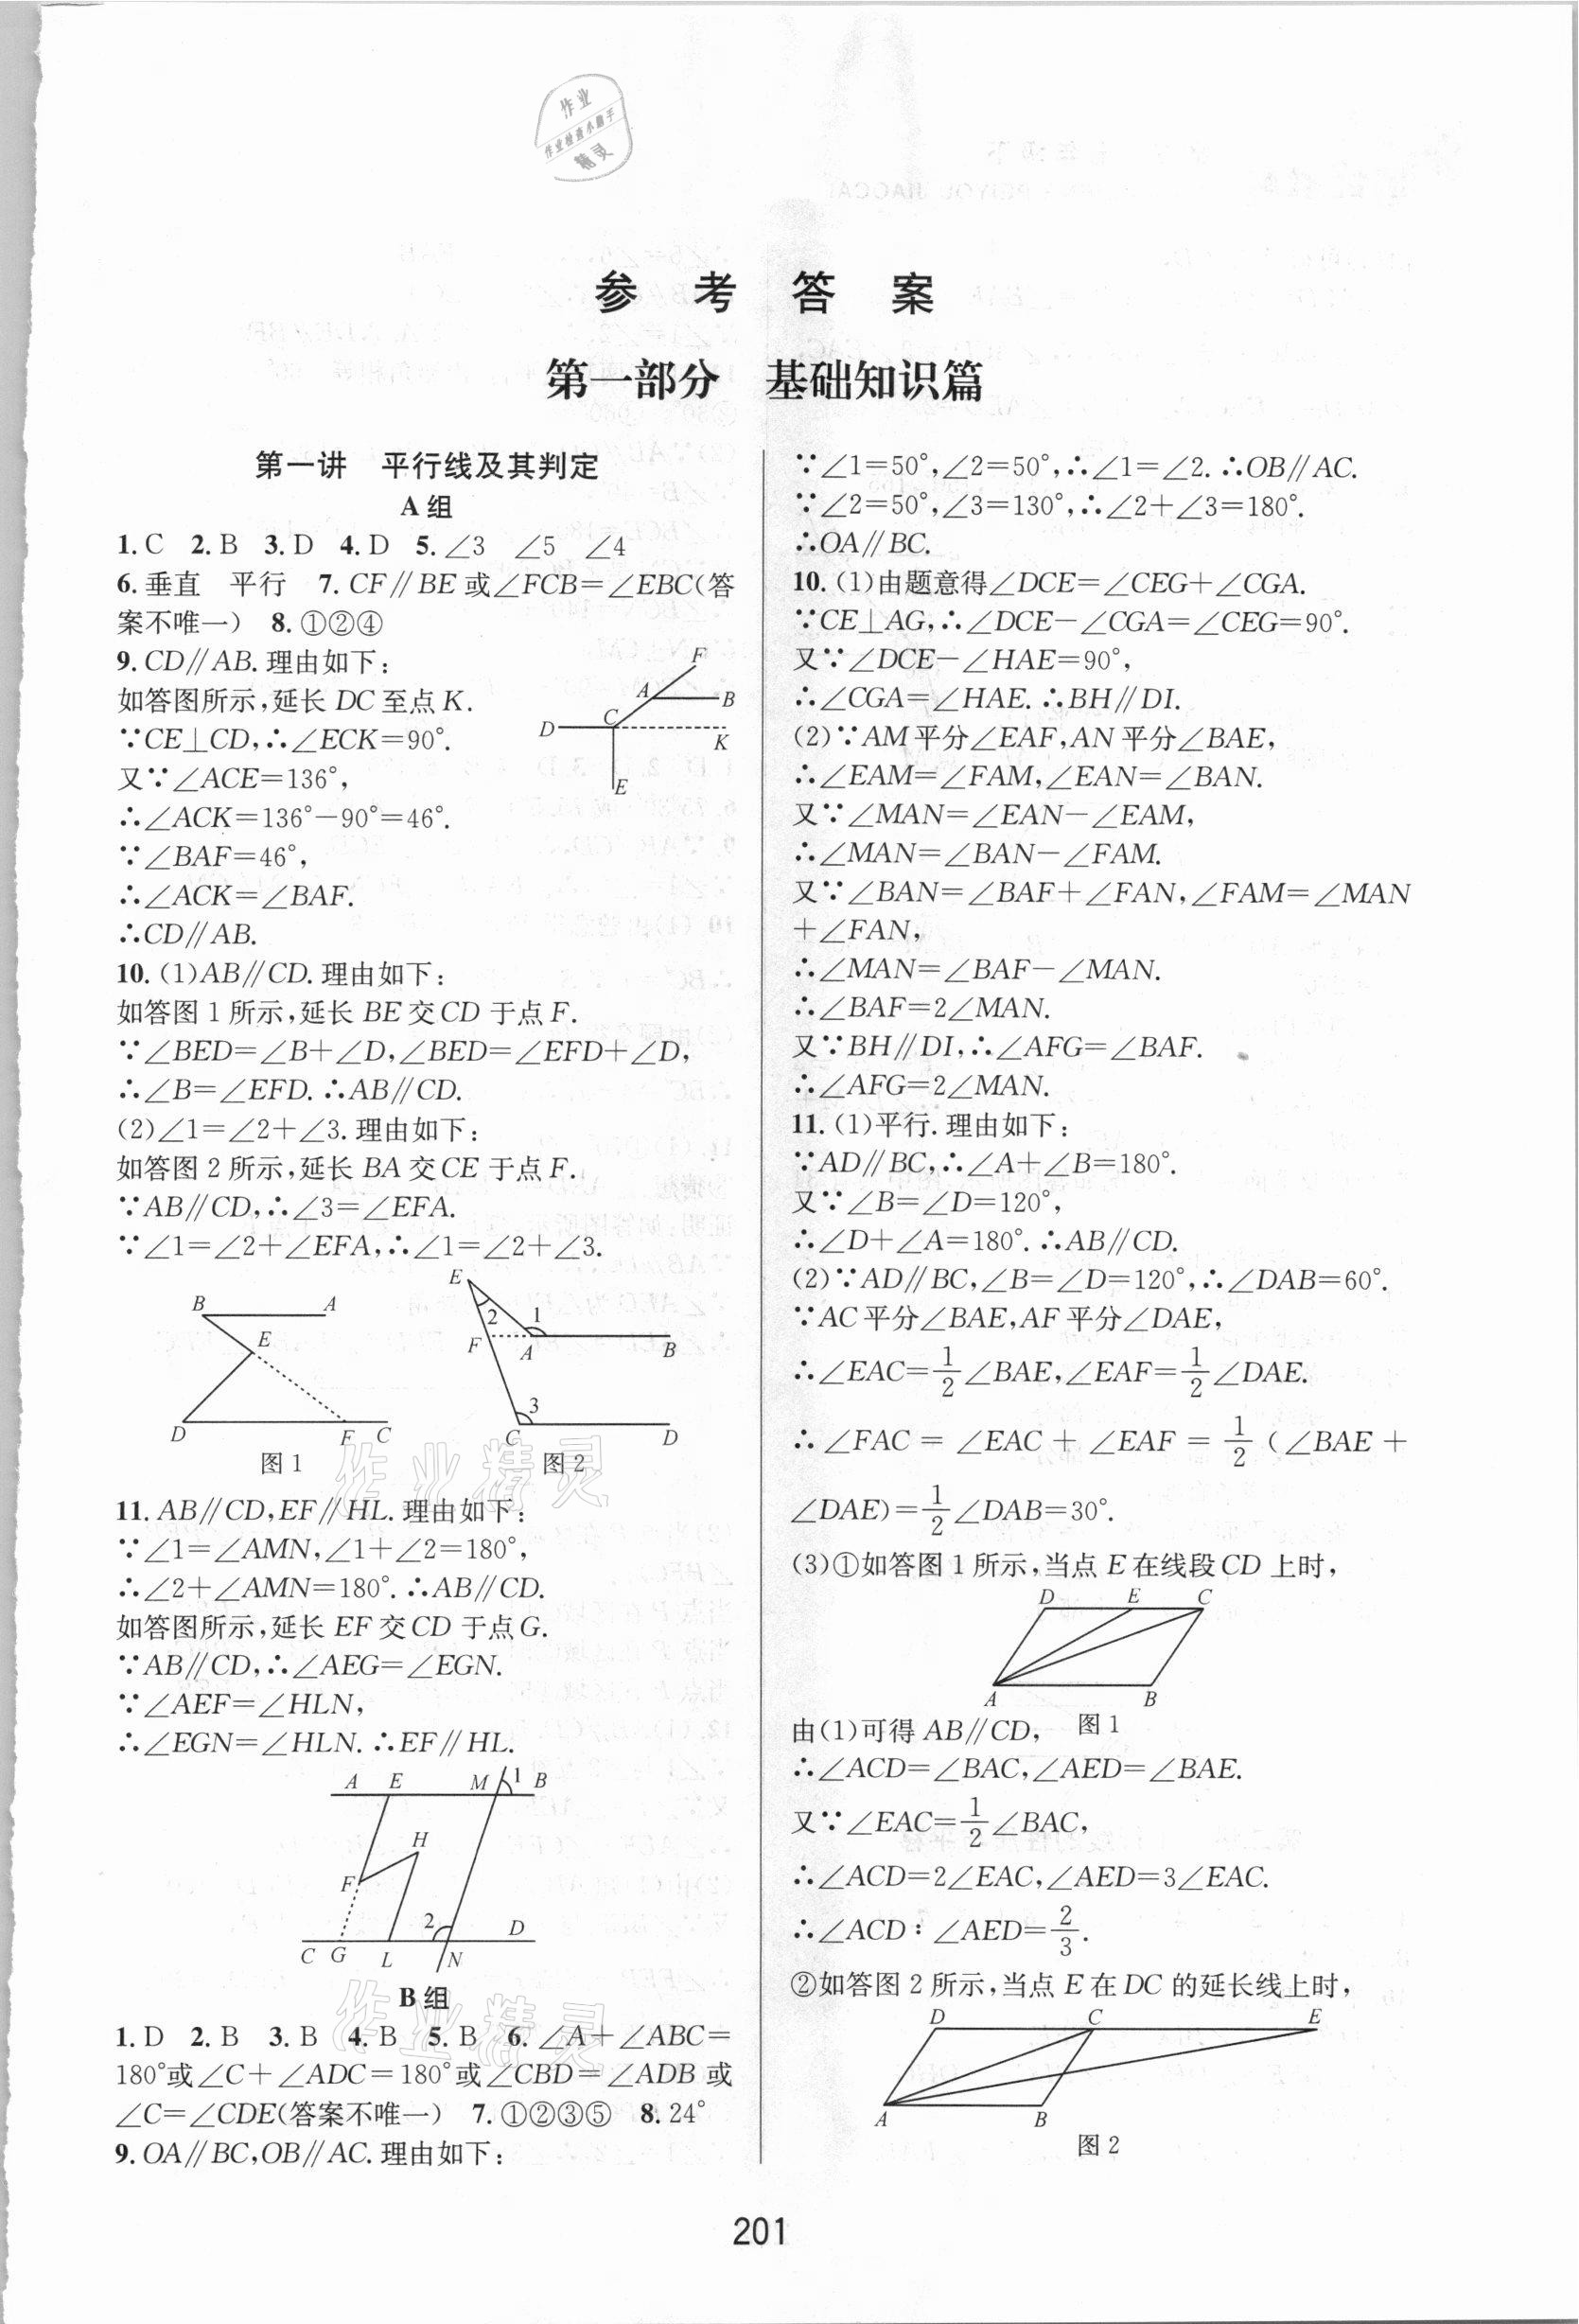 作业
作业检查小助手
精灵
参 考 答 案
第一部分 基础知识篇
第一讲 平行线及其判定
A 组
1. C 2. B 3. D 4. D 5. ∠3 ∠5 ∠4
6. 垂直 平行 7. CF∥BE 或∠FCB=∠EBC(答
案不唯一) 8. ①②④
9. CD∥AB. 理由如下:
如答图所示,延长 DC 至点 K.
∵CE⊥CD,∴∠ECK=90°.
又∵∠ACE=136°,
∴∠ACK=136°-90°=46°.
∵∠BAF=46°,
∴∠ACK=∠BAF.
∴CD∥AB.
F
A
B
C
D
K
E
10. (1)AB∥CD. 理由如下:
如答图 1 所示,延长 BE 交 CD 于点 F.
∵∠BED=∠B+∠D,∠BED=∠EFD+∠D,
∴∠B=∠EFD. ∴AB∥CD.
(2)∠1=∠2+∠3. 理由如下:
如答图 2 所示,延长 BA 交 CE 于点 F.
∵AB∥CD,∴∠3=∠EFA.
∵∠1=∠2+∠EFA,∴∠1=∠2+∠3.
B A
E
D F C
图 1
E
2 1
F A B
3
C D
图 2
11. AB∥CD,EF∥HL. 理由如下:
∵∠1=∠AMN,∠1+∠2=180°,
∴∠2+∠AMN=180°. ∴AB∥CD.
如答图所示,延长 EF 交 CD 于点 G.
∵AB∥CD,∴∠AEG=∠EGN.
∵∠AEF=∠HLN,
∴∠EGN=∠HLN. ∴EF∥HL.
A E M 1 B
H
F
2 D
C G L N
作业精灵
B 组
作业精灵
1. D 2. B 3. B 4. B 5. B 6. ∠A+∠ABC=
180°或∠C+∠ADC=180°或∠CBD=∠ADB 或
∠C=∠CDE(答案不唯一) 7. ①②③⑤ 8. 24°
9. OA∥BC,OB∥AC. 理由如下:
∵∠1=50°,∠2=50°,∴∠1=∠2. ∴OB∥AC.
∵∠2=50°,∠3=130°,∴∠2+∠3=180°.
∴OA∥BC.
10. (1)由题意得∠DCE=∠CEG+∠CGA.
∵CE⊥AG,∴∠DCE-∠CGA=∠CEG=90°.
又∵∠DCE-∠HAE=90°,
∴∠CGA=∠HAE. ∴BH∥DI.
(2)∵AM 平分∠EAF,AN 平分∠BAE,
∴∠EAM=∠FAM,∠EAN=∠BAN.
又∵∠MAN=∠EAN-∠EAM,
∴∠MAN=∠BAN-∠FAM.
又∵∠BAN=∠BAF+∠FAN,∠FAM=∠MAN
+∠FAN,
∴∠MAN=∠BAF-∠MAN.
∴∠BAF=2∠MAN.
又∵BH∥DI,∴∠AFG=∠BAF.
∴∠AFG=2∠MAN.
11. (1)平行. 理由如下:
∵AD∥BC,∴∠A+∠B=180°.
又∵∠B=∠D=120°,
∴∠D+∠A=180°. ∴AB∥CD.
(2)∵AD∥BC,∠B=∠D=120°,∴∠DAB=60°.
∵AC 平分∠BAE,AF 平分∠DAE,
∴∠EAC=1/2∠BAE,∠EAF=1/2∠DAE.
∴∠FAC=∠EAC+∠EAF=1/2(∠BAE+
∠DAE)=1/2∠DAB=30°.
(3)①如答图 1 所示,当点 E 在线段 CD 上时,
D E C
A B
图 1
由(1)可得 AB∥CD,
∴∠ACD=∠BAC,∠AED=∠BAE.
又∵∠EAC=1/2∠BAC,
∴∠ACD=2∠EAC,∠AED=3∠EAC.
∴∠ACD∶∠AED=2/3.
②如答图 2 所示,当点 E 在 DC 的延长线上时,
D C E
A B
图 2
201